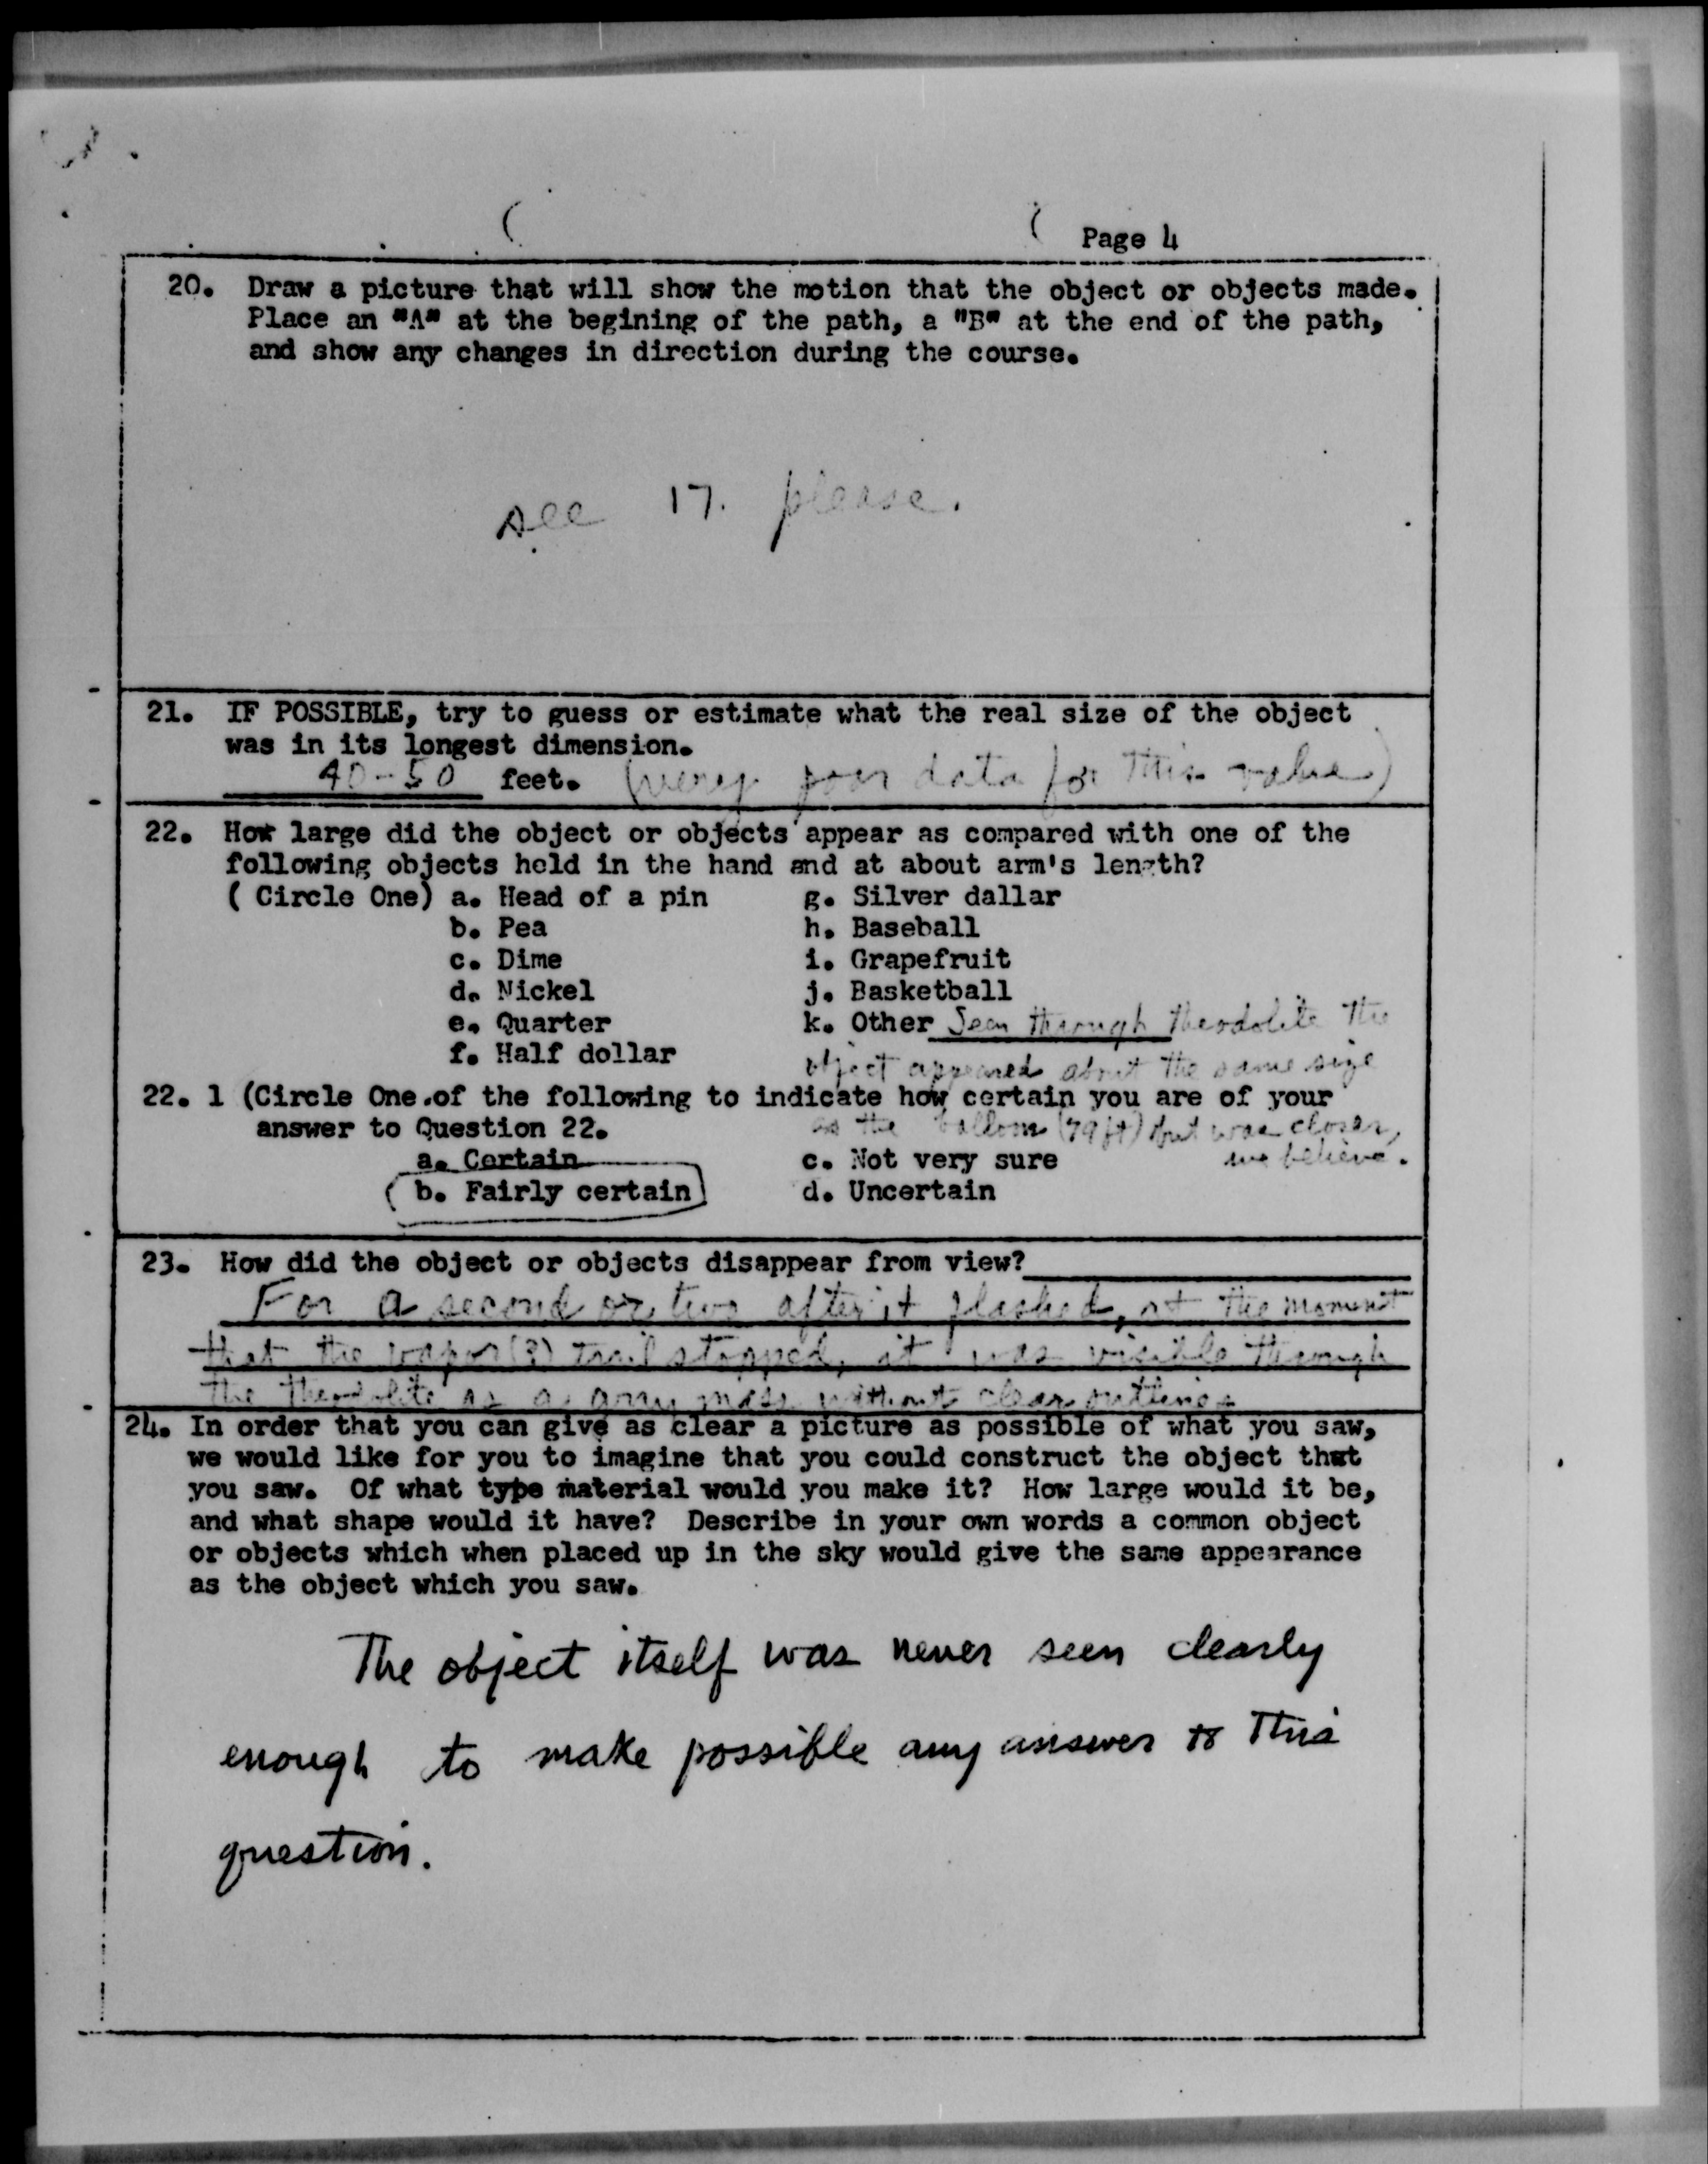 Page 4
20. Draw a picture that will show the motion that the object or objects made.
Place an "A" at the begining of the path, a "B" at the end of the path,
and show any changes in direction during the course.
see 17. please.
21. IF POSSIBLE, try to guess or estimate what the real size of the object
was in its longest dimension.
40-50 feet. (very poor data for this value)
22. How large did the object or objects appear as compared with one of the
following objects held in the hand and at about arm's length?
( Circle One) a. Head of a pin g. Silver dallar
b. Pea h. Baseball
c. Dime i. Grapefruit
d. Nickel j. Basketball
e. Quarter k. Other Seen through theodolite the
f. Half dollar object appeared about the same size
22. 1 (Circle One of the following to indicate how certain you are of your
answer to Question 22. as the balloon (79 ft) but was closer,
a. Certain c. Not very sure we believe.
b. Fairly certain d. Uncertain
23. How did the object or objects disappear from view?
For a second or two after it flashed, at the moment
that the vapor(?) trail stopped, it was visible through
the theodolite as a mass without clear outlines
24. In order that you can give as clear a picture as possible of what you saw,
we would like for you to imagine that you could construct the object that
you saw. Of what type material would you make it? How large would it be,
and what shape would it have? Describe in your own words a common object
or objects which when placed up in the sky would give the same appearance
as the object which you saw.
The object itself was never seen clearly
enough to make possible any answer to this
question.